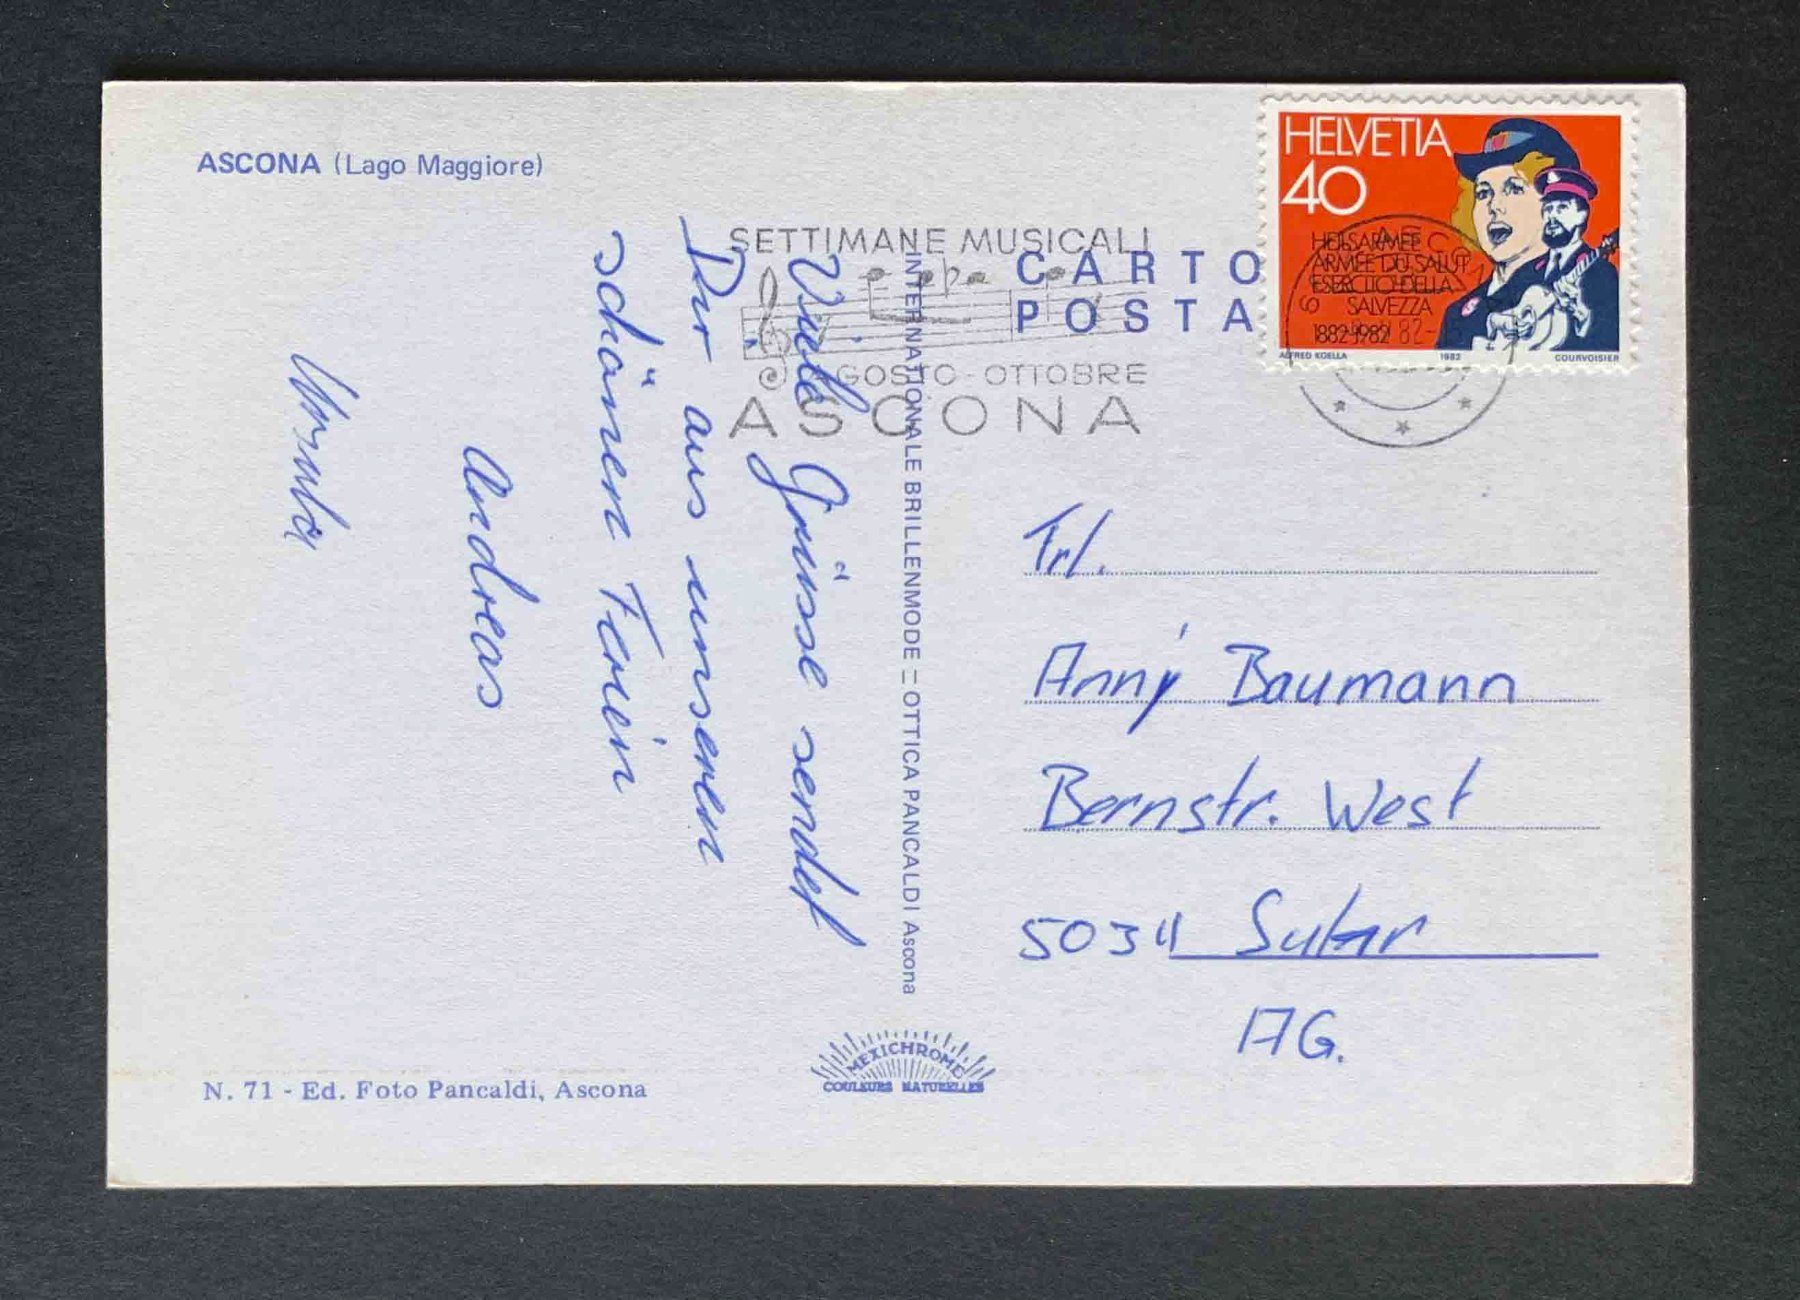 ASCONA (Lago Maggiore)
Viele Grüsse sendet
Dir aus unseren
schönen Ferien
Andreas
Ursula
N. 71 - Ed. Foto Pancaldi, Ascona
INTERNATIONALE BRILLENMODE – OTTICA PANCALDI Ascona
MEXICHROME
COULEURS NATURELLES
SETTIMANE MUSICALI
AGOSTO - OTTOBRE
ASCONA
CARTO
POSTA
HELVETIA
40
HEILSARMEE
ARMÉE DU SALUT
ESERCITO DELLA
SALVEZZA
1882-1982
ALFRED KOELLA 1982 COURVOISIER
Frl.
Anny Baumann
Bernstr. West
5034 Suhr
AG.